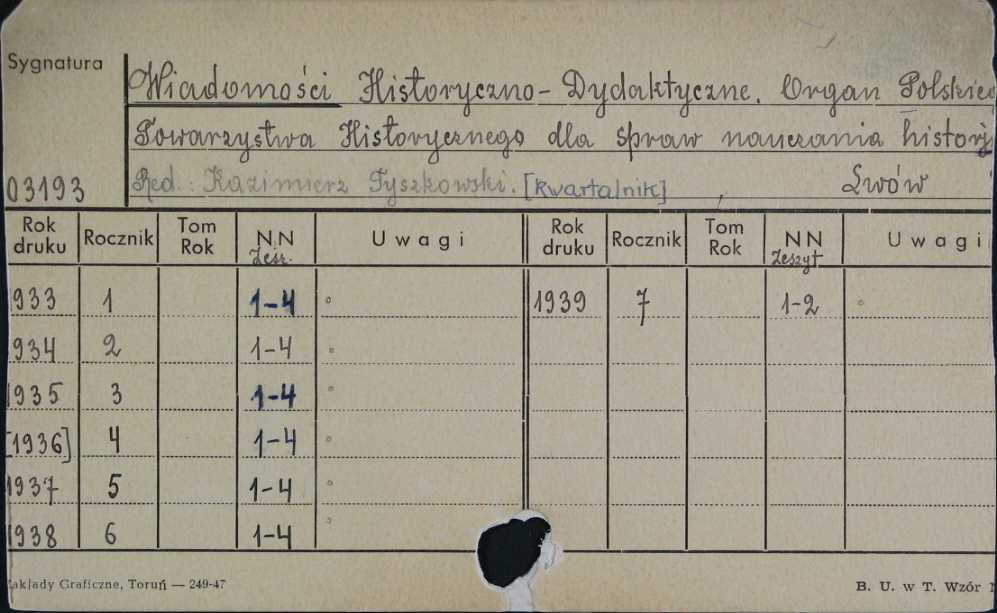 Sygnatura
Wiadomości Historyczno-Dydaktyczne. Organ Polskieg
Towarzystwa Historycznego dla spraw nauczania historj
03193
Red.: Kazimierz Tyszkowski. [Kwartalnik], Lwów
Rok druku Rocznik Tom Rok NN Zesz. Uwagi Rok druku Rocznik Tom Rok NN Zeszyt Uwagi
1933 1 1-4 1939 7 1-2
1934 2 1-4
1935 3 1-4
[1936] 4 1-4
1937 5 1-4
1938 6 1-4
Zakłady Graficzne, Toruń — 249-47 B. U. w T. Wzór